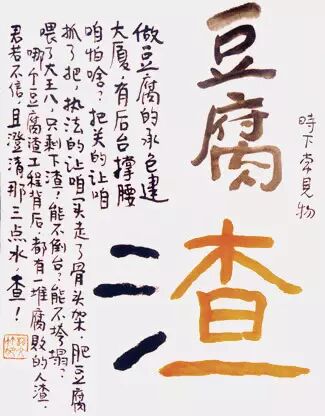 时下常見物
豆腐
渣
做豆腐的承包建
大厦，有后台撑腰
咱怕啥？把关的让咱
抓了把，执法的让咱买走了骨头架，肥豆腐
喂了大王八，只剩下渣，能不倒台？能不垮塌？
哪个豆腐渣工程背后，都有一堆腐敗的人渣．
君若不信，且澄清那三点水，查！